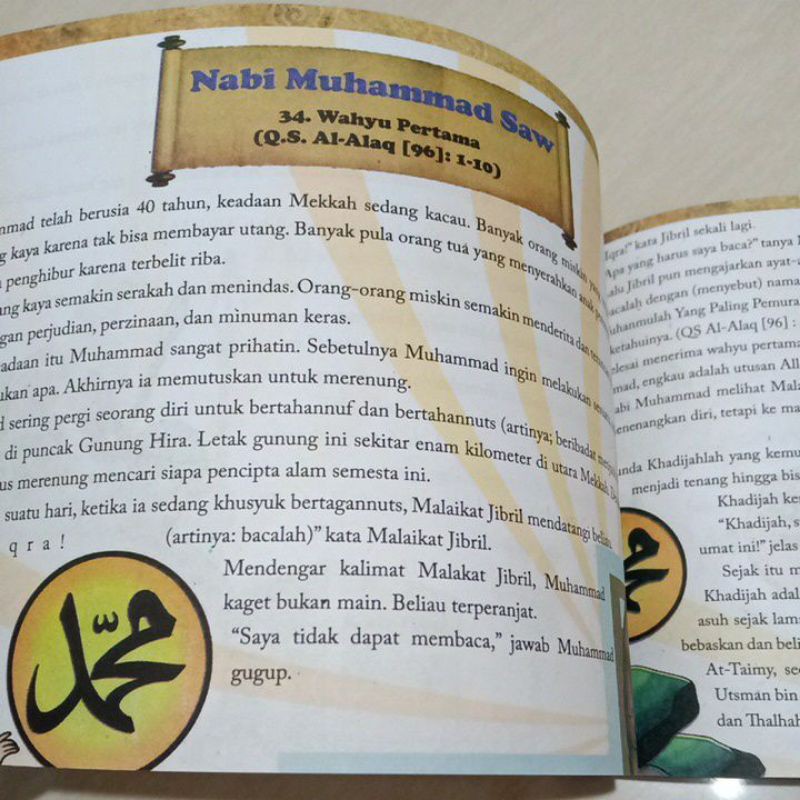 Nabi Muhammad Saw
34. Wahyu Pertama
(Q.S. Al-Alaq [96]: 1-10)
telah berusia 40 tahun, keadaan Mekkah sedang kacau. Banyak orang miskin
kaya karena tak bisa membayar utang. Banyak pula orang tua yang menyerahkan anak
penghibur karena terbelit riba.
kaya semakin serakah dan menindas. Orang-orang miskin semakin menderita dan
perjudian, perzinaan, dan minuman keras.
itu Muhammad sangat prihatin. Sebetulnya Muhammad ingin melakukan
apa. Akhirnya ia memutuskan untuk merenung.
sering pergi seorang diri untuk bertahannuf dan bertahannuts (artinya; beribadat
di puncak Gunung Hira. Letak gunung ini sekitar enam kilometer di utara Mekkah.
merenung mencari siapa pencipta alam semesta ini.
suatu hari, ketika ia sedang khusyuk bertagannuts, Malaikat Jibril mendatangi beliau.
q r a ! (artinya: bacalah)” kata Malaikat Jibril.
Mendengar kalimat Malakat Jibril, Muhammad
kaget bukan main. Beliau terperanjat.
“Saya tidak dapat membaca,” jawab Muhammad
gugup.
محمد
Iqra!” kata Jibril sekali lagi.
Apa yang harus saya baca?” tanya
Jibril pun mengajarkan
dengan (menyebut) nama
Yang Paling
(QS Al-Alaq [96] :
menerima wahyu
engkau adalah utusan
Nabi Muhammad melihat
diri, tetapi ke
Khadijahlah yang
menjadi tenang hingga
Khadijah
“Khadijah,
umat ini!” jelas
Sejak itu
Khadijah
asuh sejak
bebaskan dan
At-Taimy,
Utsman bin
dan Thalhah